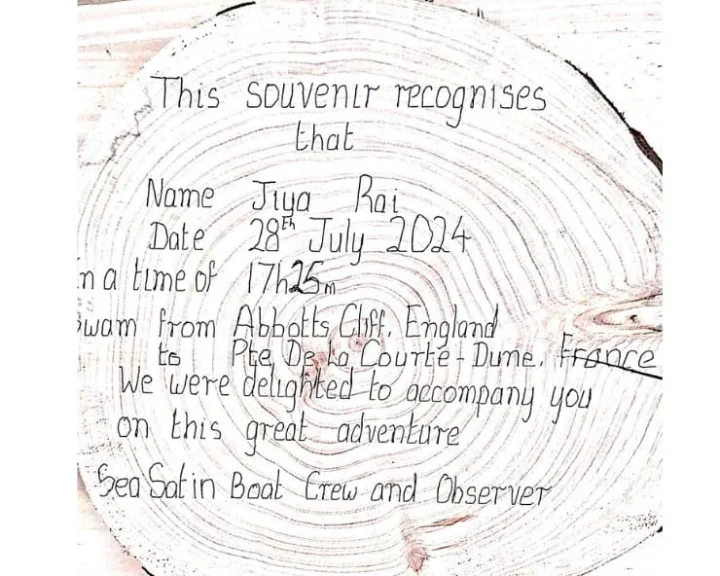 This souvenir recognises
that
Name Jiya Rai
Date 28th July 2024
In a time of 17h25m
Swam from Abbotts Cliff, England
to Pte De La Courte-Dune, France
We were delighted to accompany you
on this great adventure
Sea Satin Boat Crew and Observer